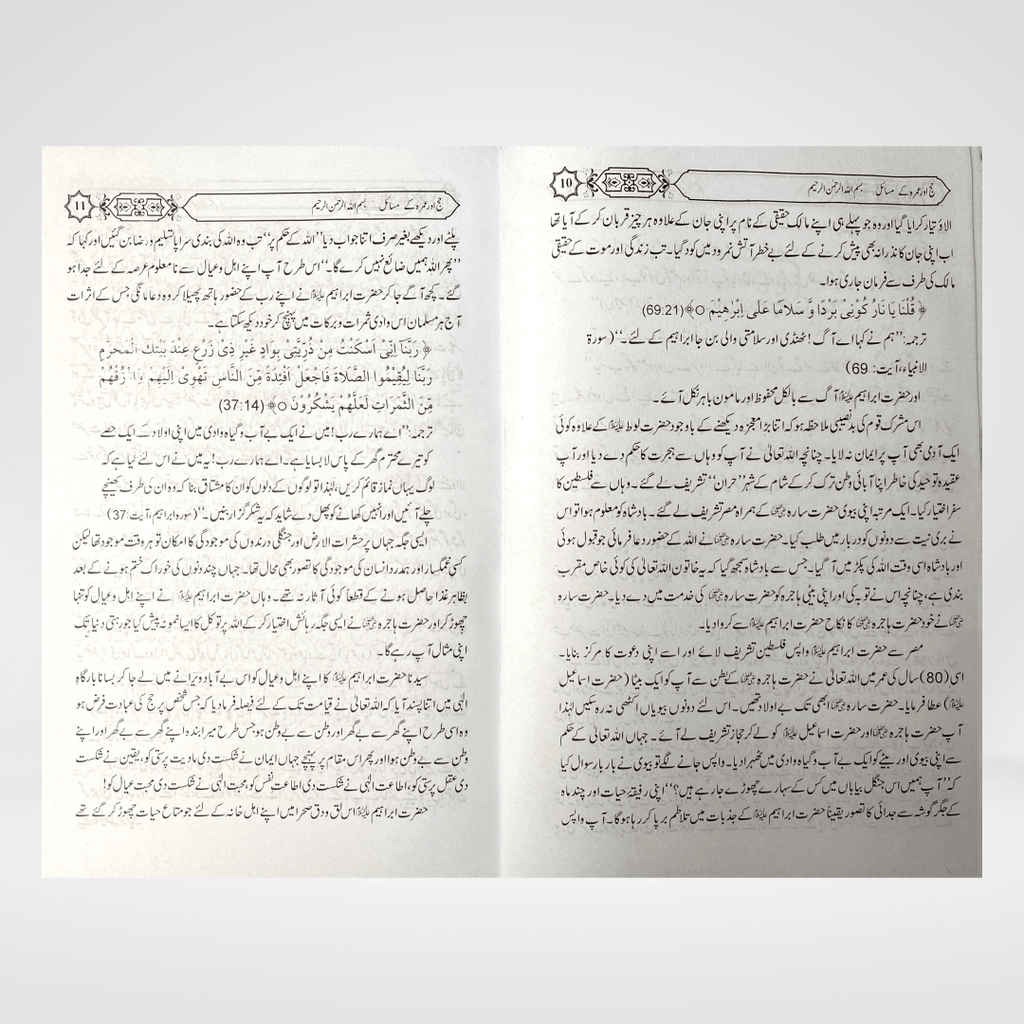 حج اور عمرہ کے مسائل ..... بسم اللہ الرحمٰن الرحیم
10
الاؤ تیار کرایا گیا اور وہ جو پہلے ہی اپنے مالک حقیقی کے نام پر اپنی جان کے علاوہ ہر چیز قربان کر کے آیا تھا
اب اپنی جان کا نذرانہ بھی پیش کرنے کے لئے بے خطر آتش نمرود میں کود گیا۔ تب زندگی اور موت کے حقیقی
مالک کی طرف سے فرمان جاری ہوا۔
﴿ قُلْنَا يَا نَارُ كُوْنِىْ بَرْدًا وَّ سَلاَمًا عَلٰى اِبْرٰهِيْمَ ○﴾(69:21)
ترجمہ:’’ہم نے کہا اے آگ ! ٹھنڈی اور سلامتی والی بن جا ابراہیم کے لئے۔‘‘( سورۃ
الانبیاء،آیت: 69)
اور حضرت ابراہیم علیہ السلام آگ سے بالکل محفوظ اور مامون باہر نکل آئے۔
اس مشرک قوم کی بدنصیبی ملاحظہ ہو کہ اتنا بڑا معجزہ دیکھنے کے باوجود حضرت لوط علیہ السلام کے علاوہ کوئی
ایک آدمی بھی آپ پر ایمان نہ لایا۔ چنانچہ اللہ تعالیٰ نے آپ کو وہاں سے ہجرت کا حکم دے دیا اور آپ
عقیدہ توحید کی خاطر اپنا آبائی وطن ترک کر کے شام کے شہر’’حران‘‘ تشریف لے گئے۔ وہاں سے فلسطین کا
سفر اختیار کیا۔ ایک مرتبہ اپنی بیوی حضرت سارہ رضی اللہ عنہا کے ہمراہ مصر تشریف لے گئے۔ بادشاہ کو معلوم ہوا تو اس
نے بری نیت سے دونوں کو دربار میں طلب کیا۔ حضرت سارہ رضی اللہ عنہا نے اللہ کے حضور دعا فرمائی جو قبول ہوئی
اور بادشاہ اسی وقت اللہ کی پکڑ میں آ گیا۔ جس سے بادشاہ سمجھ گیا کہ یہ خاتون اللہ تعالیٰ کی کوئی خاص مقرب
بندی ہے، چنانچہ اس نے توبہ کی اور اپنی بیٹی ہاجرہ کو حضرت سارہ رضی اللہ عنہا کی خدمت میں دے دیا۔ حضرت سارہ
رضی اللہ عنہا نے خود حضرت ہاجرہ رضی اللہ عنہا کا نکاح حضرت ابراہیم علیہ السلام سے کروا دیا۔
مصر سے حضرت ابراہیم علیہ السلام واپس فلسطین تشریف لائے اور اسے اپنی دعوت کا مرکز بنایا۔
اسی (80) سال کی عمر میں اللہ تعالیٰ نے حضرت ہاجرہ رضی اللہ عنہا کے بطن سے آپ کو ایک بیٹا (حضرت اسماعیل
علیہ السلام) عطا فرمایا۔ حضرت سارہ رضی اللہ عنہا ابھی تک بے اولاد تھیں۔ اس لئے دونوں بیویاں اکٹھی نہ رہ سکیں لہٰذا
آپ حضرت ہاجرہ رضی اللہ عنہا اور حضرت اسماعیل علیہ السلام کو لے کر حجاز تشریف لے آئے۔ جہاں اللہ تعالیٰ کے حکم
سے اپنی بیوی اور بیٹے کو ایک بے آب و گیاہ وادی میں ٹھہرا دیا۔ واپس جانے لگے تو بیوی نے بار بار سوال کیا
کہ ’’آپ ہمیں اس جنگل بیاباں میں کس کے سہارے چھوڑے جا رہے ہیں؟‘‘ اپنی رفیقۂ حیات اور چند ماہ
کے جگر گوشہ سے جدائی کا تصور یقیناً حضرت ابراہیم علیہ السلام کے جذبات میں تلاطم برپا کر رہا ہوگا۔ آپ واپس
حج اور عمرہ کے مسائل ..... بسم اللہ الرحمٰن الرحیم
11
پلٹے اور دیکھے بغیر صرف اتنا جواب دیا ’’اللہ کے حکم پر‘‘ تب وہ اللہ کی بندی سراپا تسلیم و رضا بن گئیں اور کہا کہ
’’پھر اللہ ہمیں ضائع نہیں کرے گا۔‘‘ اس طرح آپ اپنے اہل و عیال سے نامعلوم عرصہ کے لئے جدا ہو
گئے۔ کچھ آگے جا کر حضرت ابراہیم علیہ السلام نے اپنے رب کے حضور ہاتھ پھیلا کر وہ دعا مانگی جس کے اثرات
آج ہر مسلمان اس وادی ثمرات و برکات میں پہنچ کر خود دیکھ سکتا ہے۔
﴿ رَبَّنَآ اِنِّىْ اَسْكَنْتُ مِنْ ذُرِّيَّتِىْ بِوَادٍ غَيْرِ ذِىْ زَرْعٍ عِنْدَ بَيْتِكَ الْمُحَرَّمِ
رَبَّنَا لِيُقِيْمُوا الصَّلاَةَ فَاجْعَلْ اَفْئِدَةً مِّنَ النَّاسِ تَهْوِىْ اِلَيْهِمْ وَارْزُقْهُمْ
مِّنَ الثَّمَرَاتِ لَعَلَّهُمْ يَشْكُرُوْنَ ○﴾ (37:14)
ترجمہ:’’اے ہمارے رب! میں نے ایک بے آب و گیاہ وادی میں اپنی اولاد کے ایک حصے
کو تیرے محترم گھر کے پاس لا بسایا ہے۔ اے ہمارے رب! یہ میں نے اس لئے کیا ہے کہ
لوگ یہاں نماز قائم کریں، لہٰذا تو لوگوں کے دلوں کو ان کا مشتاق بنا کہ وہ ان کی طرف کھنچے
چلے آئیں اور انہیں کھانے کو پھل دے شاید کہ یہ شکر گزار بنیں۔‘‘(سورہ ابراہیم،آیت: 37)
ایسی جگہ جہاں پر حشرات الارض اور جنگلی درندوں کی موجودگی کا امکان تو ہر وقت موجود تھا لیکن
کسی غمگسار اور ہمدرد انسان کی موجودگی کا تصور بھی محال تھا۔ جہاں چند دنوں کی خوراک ختم ہونے کے بعد
بظاہر غذا حاصل ہونے کے قطعاً کوئی آثار نہ تھے۔ وہاں حضرت ابراہیم علیہ السلام نے اپنے اہل و عیال کو تنہا
چھوڑ کر اور حضرت ہاجرہ رضی اللہ عنہا نے ایسی جگہ رہائش اختیار کر کے اللہ پر توکل کا ایسا نمونہ پیش کیا جو رہتی دنیا تک
اپنی مثال آپ رہے گا۔
سیدنا حضرت ابراہیم علیہ السلام کا اپنے اہل و عیال کو اس بے آباد ویرانے میں لے جا کر بسانا بارگاہ
الٰہی میں اتنا پسند آیا کہ اللہ تعالیٰ نے قیامت تک کے لئے فیصلہ فرما دیا کہ جس شخص پر حج کی عبادت فرض ہو
وہ اسی طرح اپنے گھر سے بے گھر اور وطن سے بے وطن ہو، جس طرح میرا بندہ اپنے گھر سے بے گھر اور اپنے
وطن سے بے وطن ہوا اور پھر اس مقام پر پہنچے جہاں ایمان نے شکست دی مادیت پرستی کو، یقین نے شکست
دی عقل پرستی کو، اطاعت الٰہی نے شکست دی اطاعت نفس کو، محبت الٰہی نے شکست دی محبت عیال کو!
حضرت ابراہیم علیہ السلام اس لق و دق صحرا میں اپنے اہل خانہ کے لئے جو متاع حیات چھوڑ کر گئے تھے